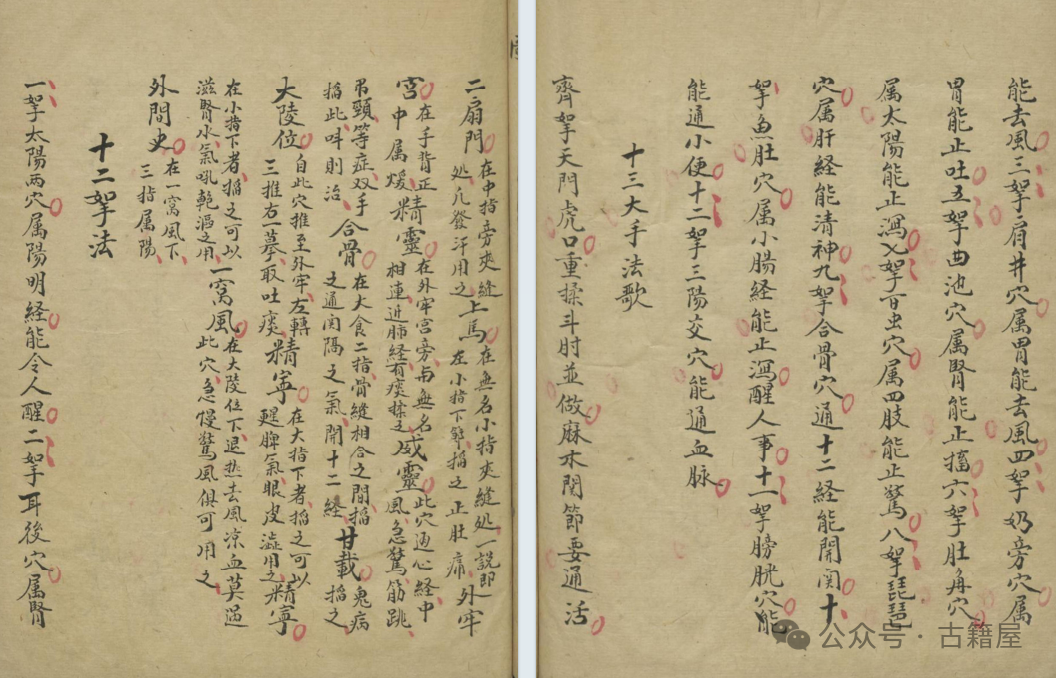 能去風三拏肩井穴属胃能去風四拏奶旁穴属
胃能止吐五拏曲池穴属腎能止搐六拏肚角穴
属太陽能止瀉七拏百虫穴属四肢能止驚八拏琵琶
穴属肝経能清神九拏合骨穴通十二経能開関十
拏魚肚穴属小腸経能止瀉醒人事十一拏膀胱穴能
能通小便十二拏三陽交穴能通血脉
十三大手法歌
齊拏天門虎口重揉斗肘並做麻木関節要通活
二扇門 在中指旁夾縫处凡發汗用之 上馬 在無名小指夾縫処一説即左小指下掐之止肚痛 外牢
宮 在手背正中属煖 精靈 在外牢宮旁与無名相連近肺経有痰揉之 威靈 此穴通心経中風急驚筋跳
吊頸等症双手掐此呌則治 合骨 在大食二指骨縫相合之間掐之通関隔之氣開十二経 甘載 鬼病掐之
大陵位 自此穴推至外牢左轉三推右一摹取吐痰 精寧 在大指下者掐之可以醒脾氣眼皮澁用之 精寧
在小指下者掐之可以滋腎水氣吼䩄滙之用 一窩風 在大陵位下退热去風凉血莫過此穴急慢驚風俱可用之
外間史 在一窩風下三指属陽
十二拏法
一拏太陽两穴属陽明経能令人醒二拏耳後穴属腎
公众号·古籍屋